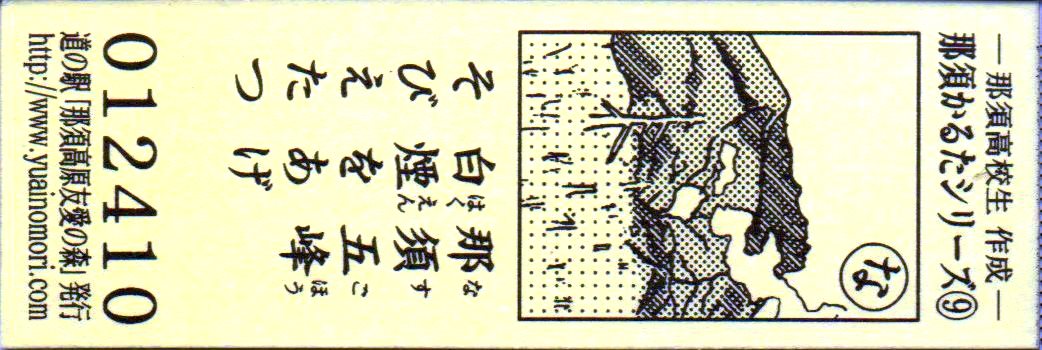 ―那須高校生 作成―
那須かるたシリーズ⑨
な
那須五峰
なすごほう
白煙をあげ
はくえん
そびえたつ
012410
道の駅「那須高原友愛の森」発行
http://www.yuainomori.com